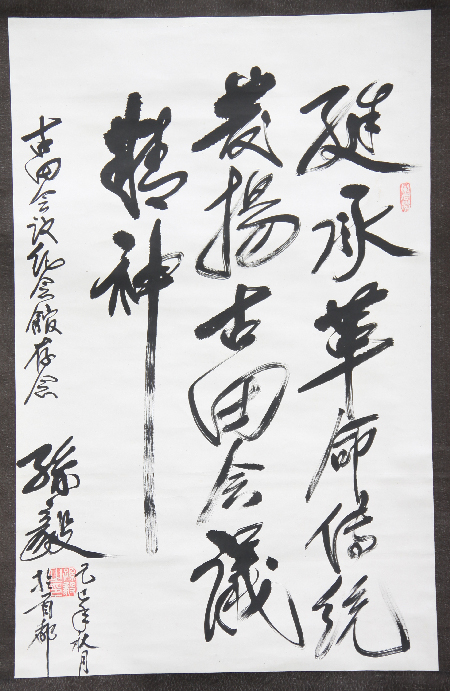 継承革命傳統
发揚古田会議
精神
古田会议纪念館存念
孫毅
己巳年秋月
於首都